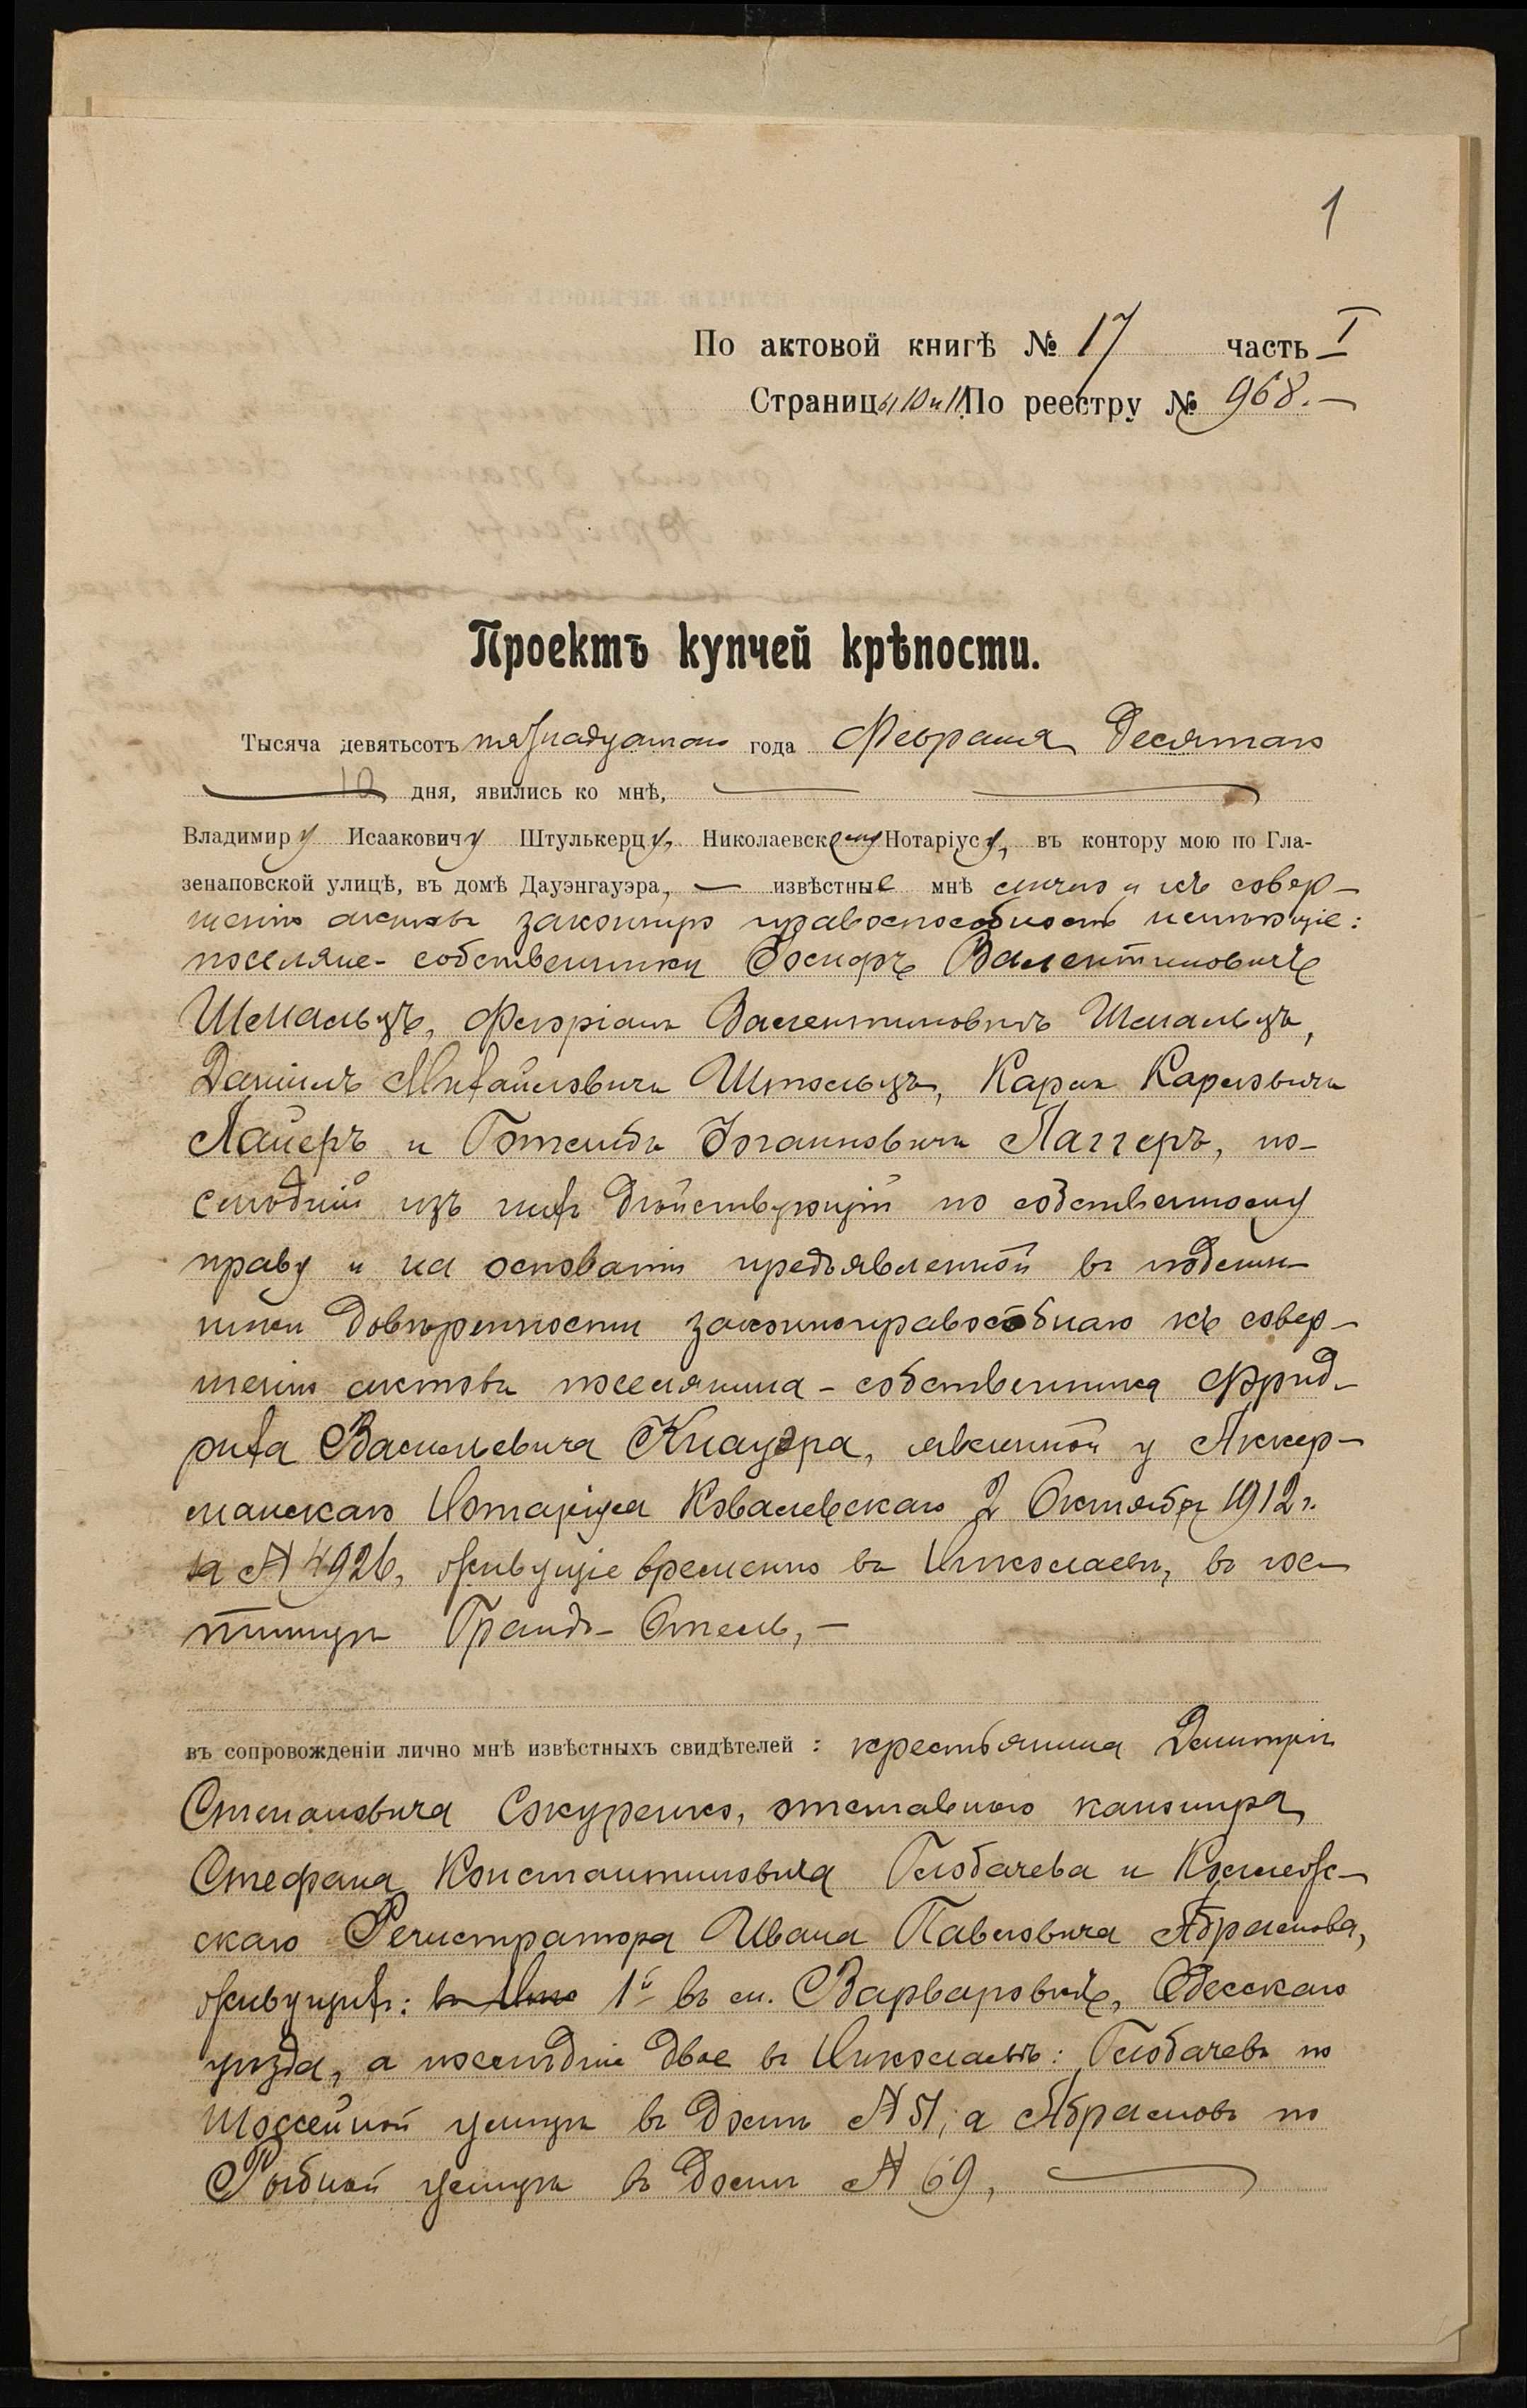 1
По актовой книгѣ № 17 часть I
Страницы 10 и 11 По реестру № 968.—
Проектъ купчей крѣпости.
Тысяча девятьсотъ пятнадцатаго года Февраля Десятаго
10 дня, явились ко мнѣ,
Владимиру Исааковичу Штулькерцу, Николаевскому Нотаріусу, въ контору мою по Гла-
зенаповской улицѣ, въ домѣ Дауэнгауэра, — извѣстные мнѣ лично и къ совер-
шенію актовъ законную правоспособность имѣющіе:
поселяне-собственники Іосифъ Валентиновичъ
Шмальцъ, Флоріанъ Валентиновичъ Шмальцъ,
Даніилъ Михайловичъ Штольцъ, Карлъ Карловичъ
Лайеръ и Готлибъ Іоганновичъ Лаггеръ, по-
слѣдній изъ нихъ дѣйствующій по собственному
праву и на основаніи предъявленной въ подлин-
никѣ довѣренности законноправособнаго къ совер-
шенію актовъ поселянина-собственника Фрид-
риха Васильевича Кнауэра, явленной у Аккер-
манскаго Нотаріуса Ковалевскаго 2 Октября 1912 г.
за № 4926, живущіе временно въ Николаевѣ, въ гос-
тинницѣ Грандъ-Отель,—
въ сопровожденіи лично мнѣ извѣстныхъ свидѣтелей: крестьянина Дмитрія
Степановича Сокуренко, отставного канонира
Стефана Константиновича Глобачева и Коллеж-
скаго Регистратора Ивана Павловича Абрамова,
живущихъ: въ Нико 1й въ м. Варваровкѣ, Одесскаго
уѣзда, а послѣдніе двое въ Николаевѣ: Глобачевъ по
Шоссейной улицѣ въ домѣ № 51, а Абрамовъ по
Рыбной улицѣ въ домѣ № 69,